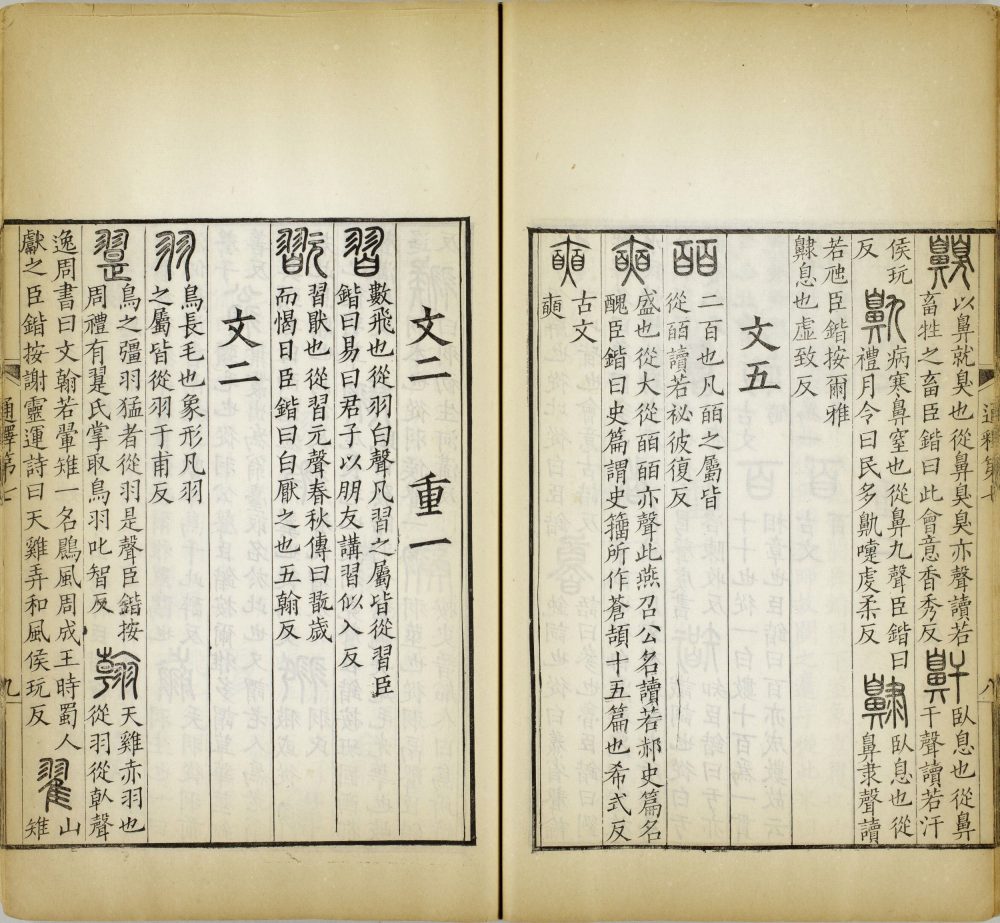 齅以鼻就臭也從鼻臭臭亦聲讀若
畜牲之畜臣鍇曰此會意香秀反
鼾臥息也從鼻
干聲讀若汗
侯玩
反
鼽病寒鼻窒也從鼻九聲臣鍇曰
禮月令曰民多鼽嚏虔柔反
䶓臥息也從
鼻隶聲讀
若虺臣鍇按爾雅
䶓息也虛致反
文五
皕二百也凡皕之屬皆
從皕讀若祕彼復反
奭盛也從大從皕皕亦聲此燕召公名讀若郝史篇名
醜臣鍇曰史篇謂史籀所作蒼頡十五篇也希式反
古文
奭
通釋第七
八
文二 重一
習數飛也從羽白聲凡習之屬皆從習臣
鍇曰易曰君子以朋友講習似入反
翫習猒也從習元聲春秋傳曰翫歲
而愒日臣鍇曰白厭之也五翰反
文二
羽鳥長毛也象形凡羽
之屬皆從羽于甫反
翨鳥之彊羽猛者從羽是聲臣鍇按
周禮有翨氏掌取鳥羽叱智反
翰天雞赤羽也
從羽從倝聲
逸周書曰文翰若翬雉一名鷐風周成王時蜀人
獻之臣鍇按謝靈運詩曰天雞弄和風侯玩反
翟山
雉
通釋第七
九